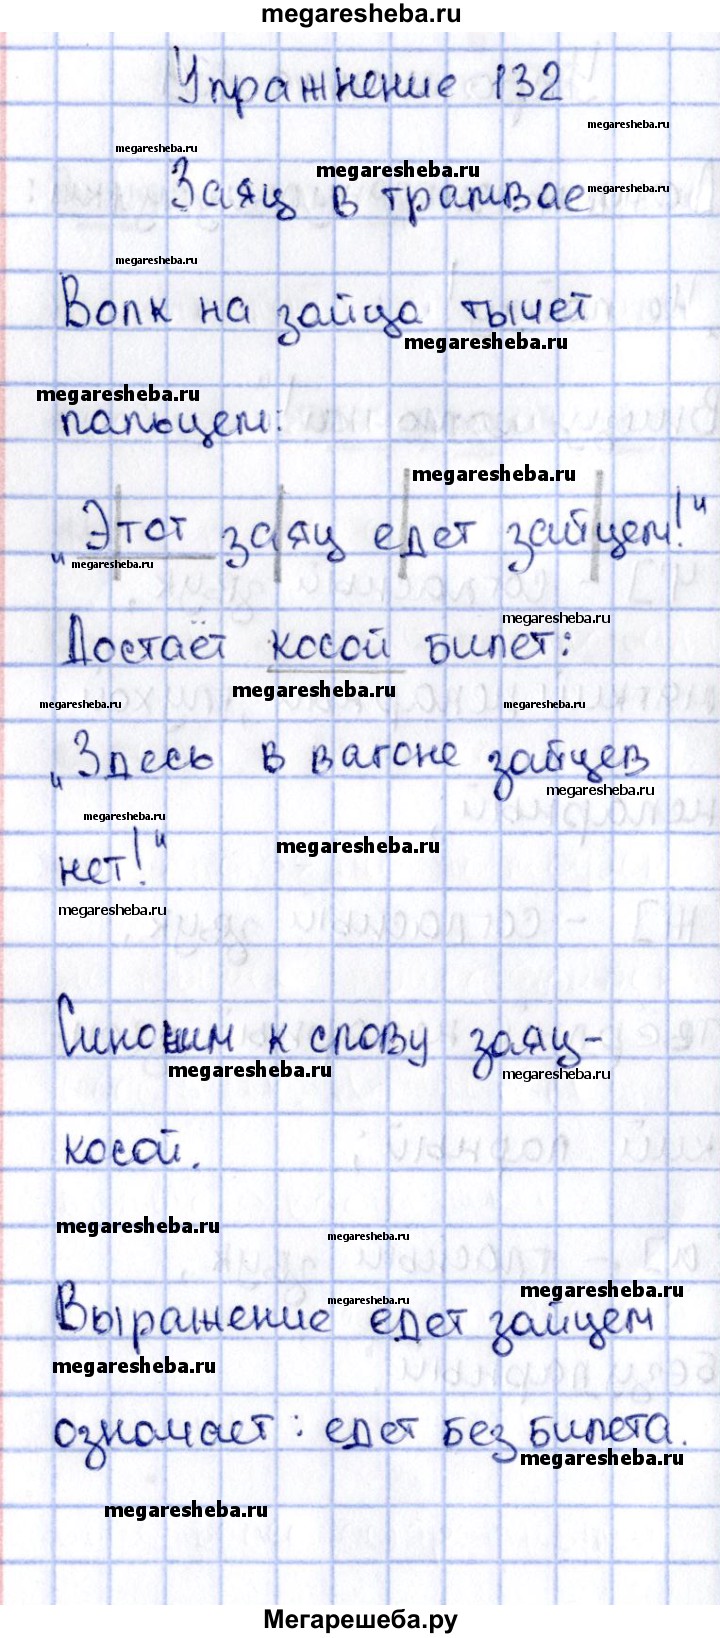 megaresheba.ru
Упражнение 132
megaresheba.ru
megaresheba.ru
megaresheba.ru
megaresheba.ru
Заяц в трамвае
megaresheba.ru
Волк на зайца тычет
megaresheba.ru
megaresheba.ru
пальцем:
megaresheba.ru
„Этот заяц едет зайцем!"
megaresheba.ru
megaresheba.ru
Достаёт косой билет:
megaresheba.ru
megaresheba.ru
megaresheba.ru
„Здесь в вагоне зайцев
megaresheba.ru
megaresheba.ru
megaresheba.ru
нет!"
megaresheba.ru
Синоним к слову заяц-
megaresheba.ru
megaresheba.ru
косой.
megaresheba.ru
megaresheba.ru
megaresheba.ru
megaresheba.ru
Выражение едет зайцем
megaresheba.ru
означает: едет без билета.
megaresheba.ru
megaresheba.ru
Мегарешеба.ру